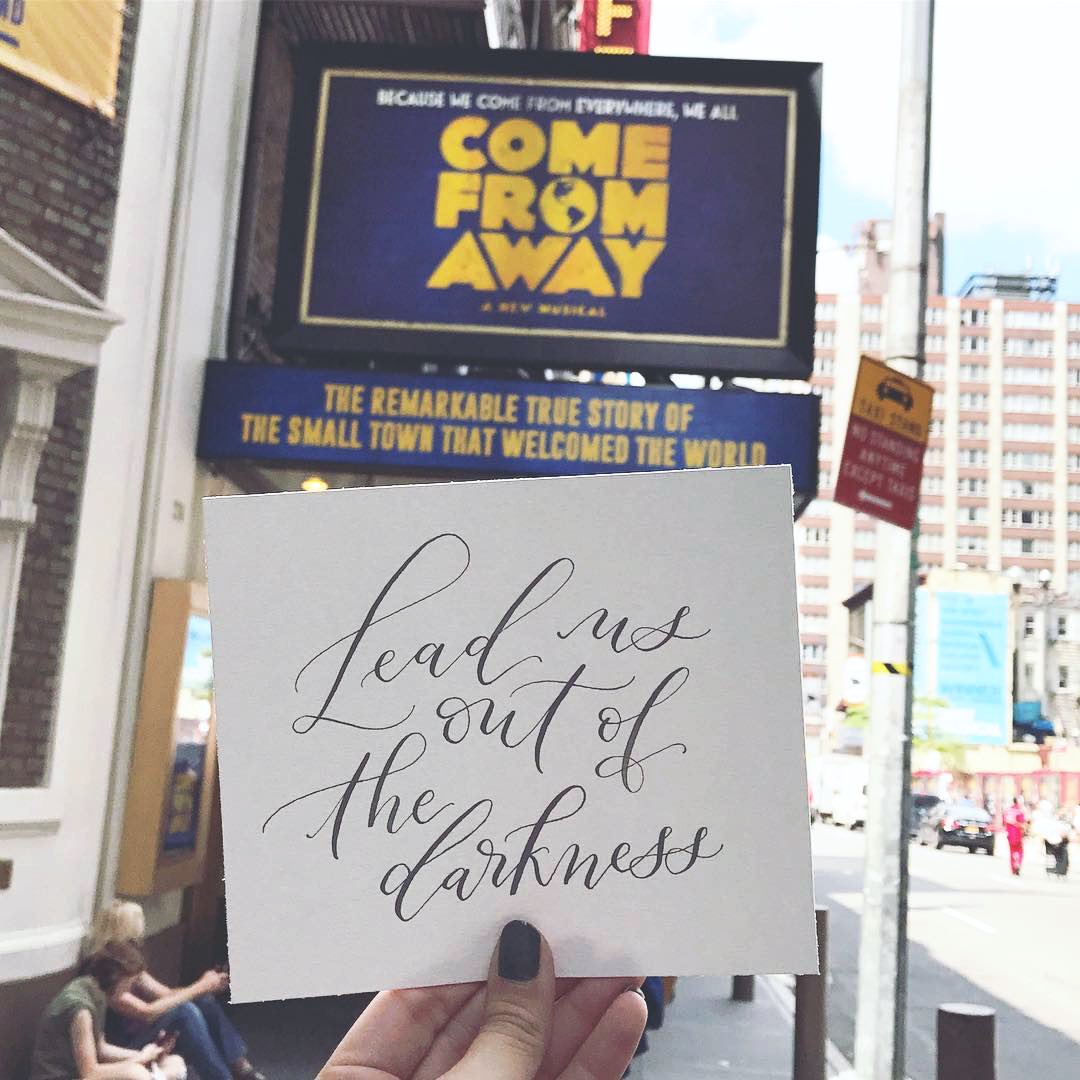 BECAUSE WE COME FROM EVERYWHERE, WE ALL
COME
FROM
AWAY
A NEW MUSICAL
THE REMARKABLE TRUE STORY OF
THE SMALL TOWN THAT WELCOMED THE WORLD
TAXI STAND
NO STANDING
ANYTIME
EXCEPT TAXIS
Lead us
out of
the
darkness